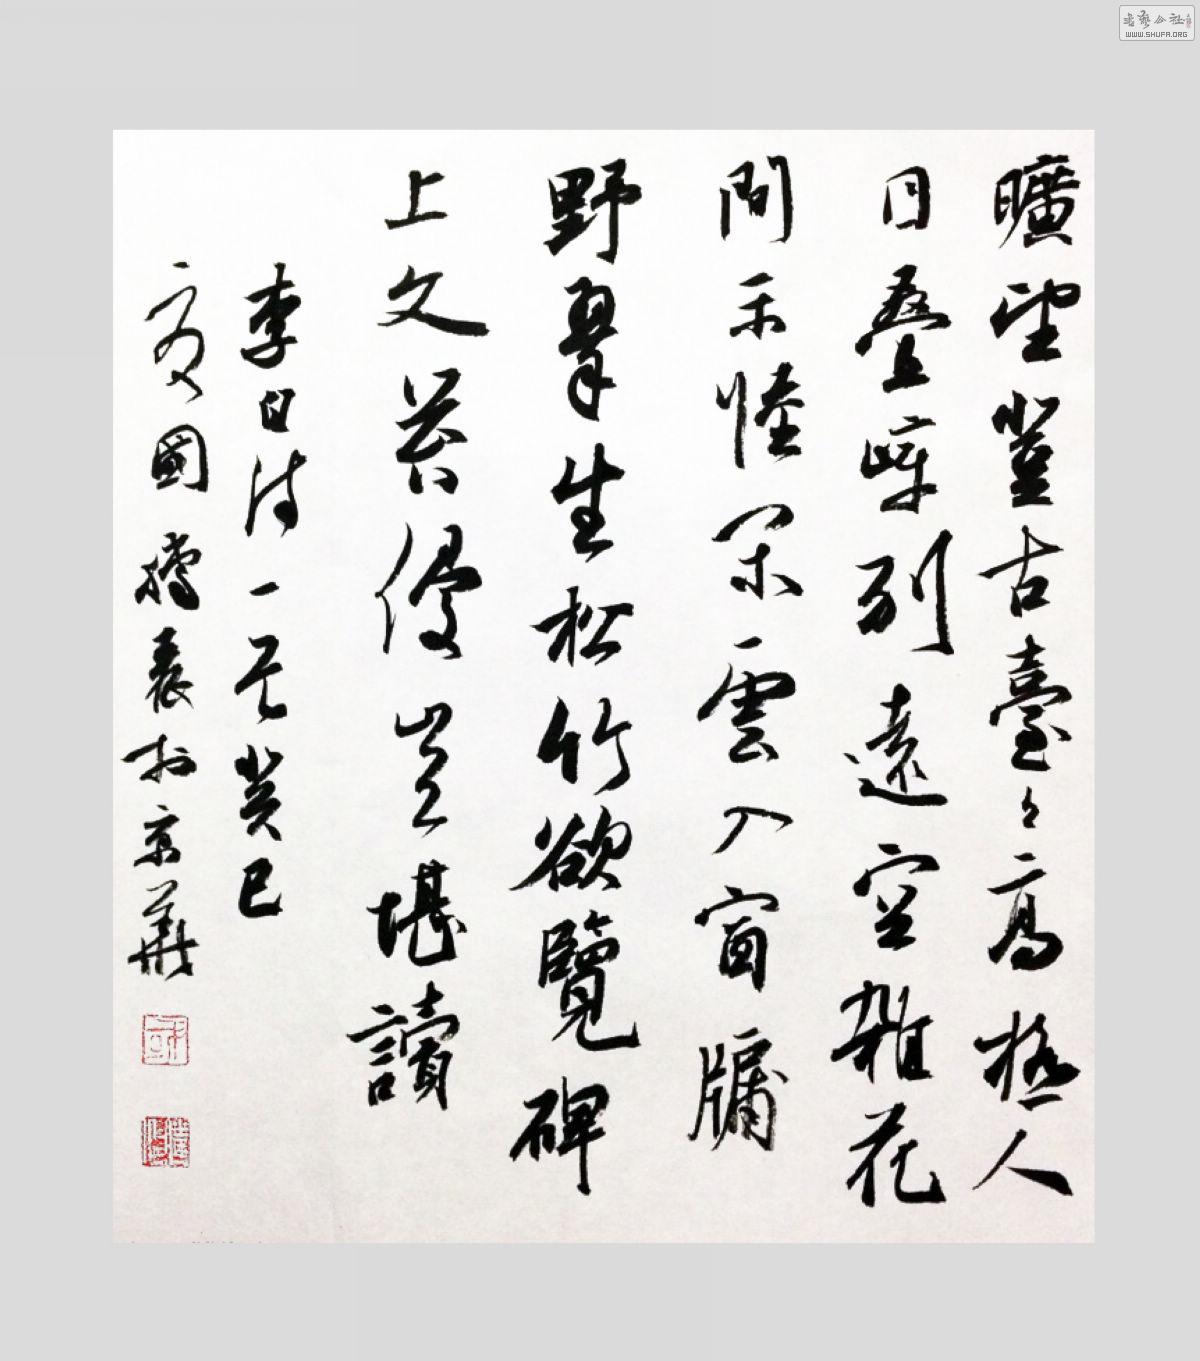 书艺公社
WWW.SHUFA.ORG
曠望登古臺々高極人
目疊嶂列遠空雜花
間平陸閑雲入窗牖
野翠生松竹欲覽碑
上文苔侵豈堪讀
李白詩一首癸巳
夏國於京華